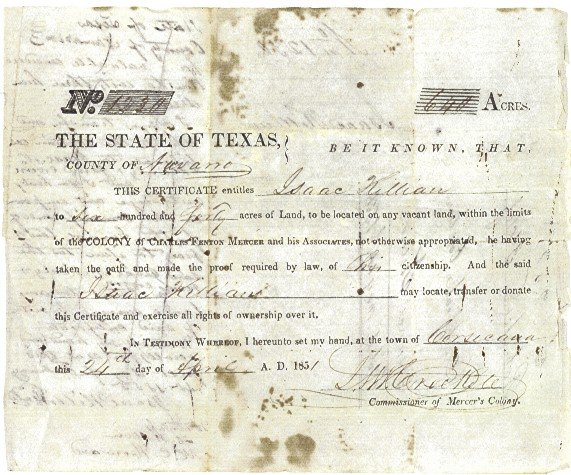 No. 640 ACRES.
THE STATE OF TEXAS, BE IT KNOWN, THAT,
COUNTY OF Navarro
THIS CERTIFICATE entitles Isaac Killian
to six hundred and forty acres of Land, to be located on any vacant land, within the limits
of the COLONY of CHARLES FENTON MERCER and his ASSOCIATES, not otherwise appropriated, he having
taken the oath and made the proof required by law, of his citizenship. And the said
Isaac Killian may locate, transfer or donate
this Certificate and exercise all rights of ownership over it.
IN TESTIMONY WHEREOF, I hereunto set my hand, at the town of Corsicana
this 24th day of April A. D. 1851
Commissioner of Mercer's Colony.